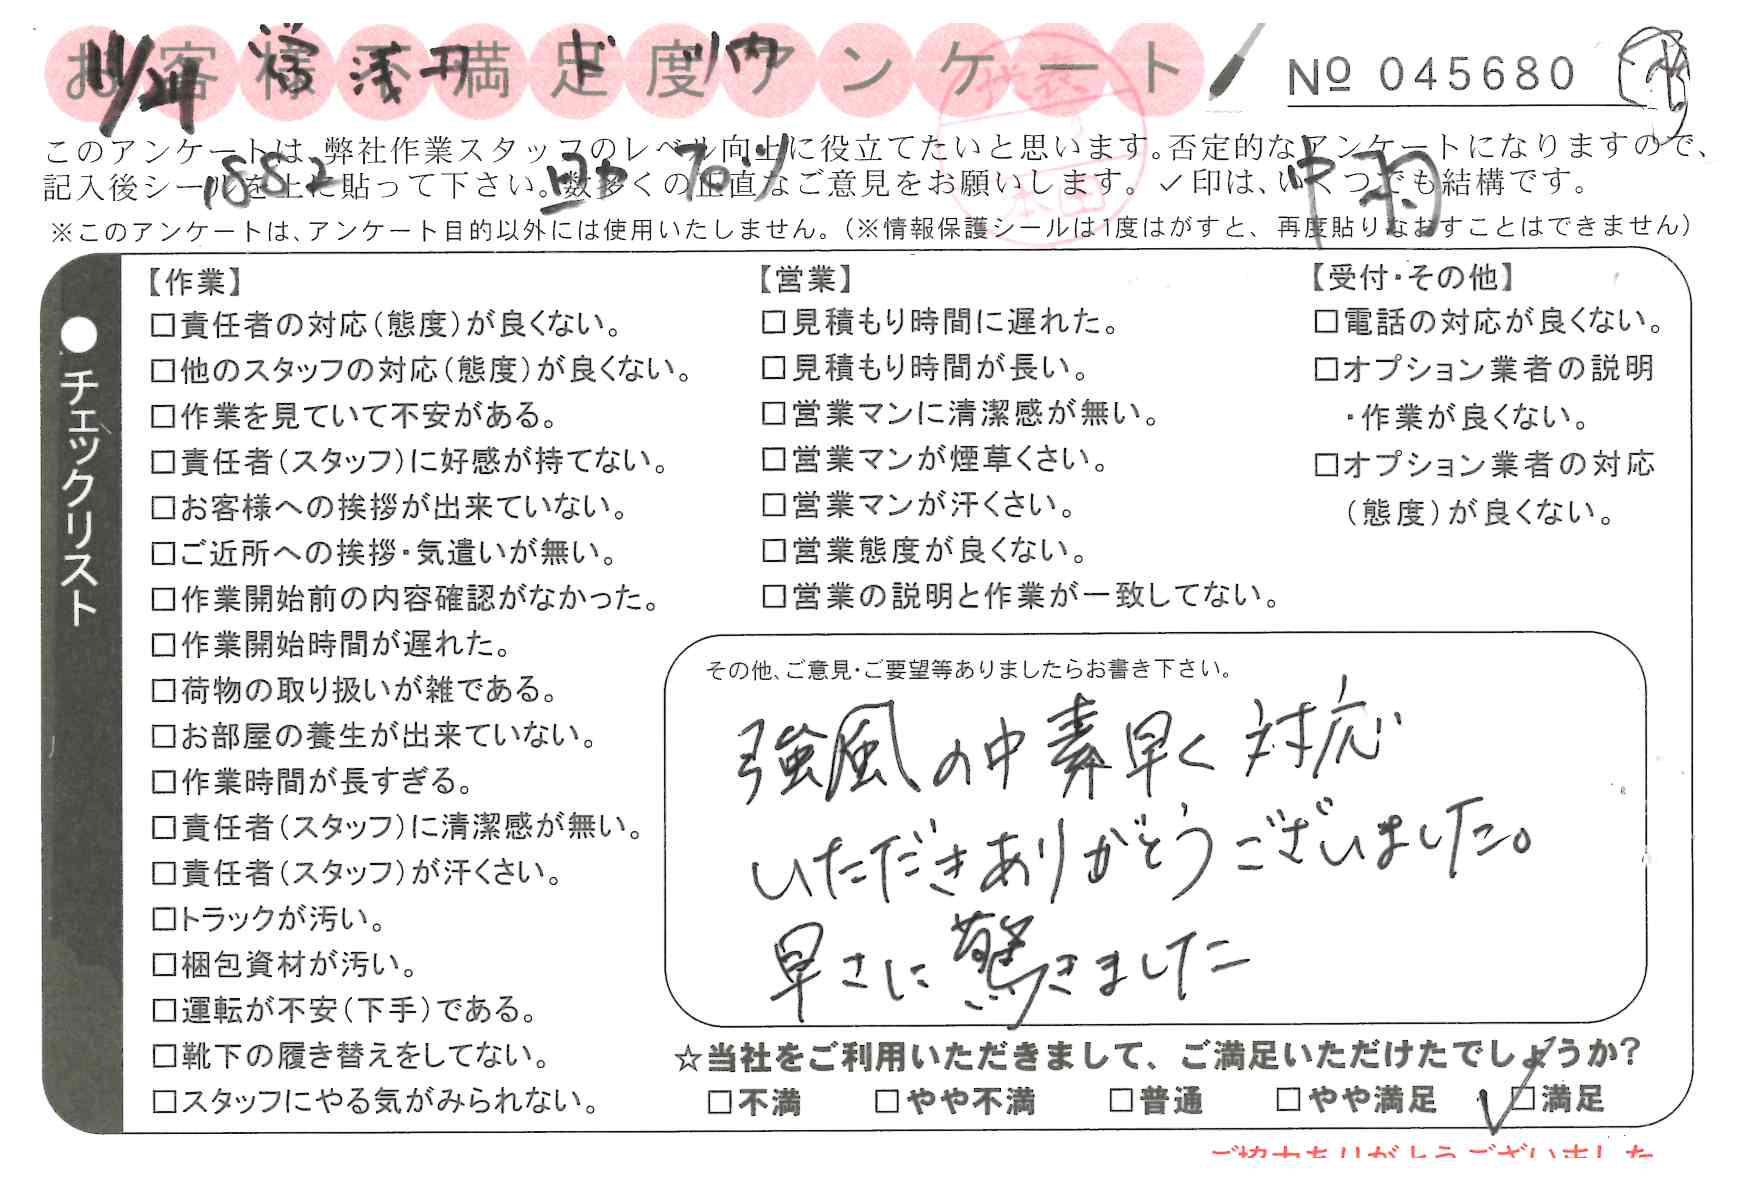 お客様不満足度アンケート
No 045680
11/24
1882
このアンケートは、弊社作業スタッフのレベル向上に役立てたいと思います。否定的なアンケートになりますので、
記入後シールを上に貼って下さい。数多くの正直なご意見をお願いします。✓印は、いくつでも結構です。
※このアンケートは、アンケート目的以外には使用いたしません。(※情報保護シールは1度はがすと、再度貼りなおすことはできません)
●チェックリスト
【作業】
□責任者の対応(態度)が良くない。
□他のスタッフの対応(態度)が良くない。
□作業を見ていて不安がある。
□責任者(スタッフ)に好感が持てない。
□お客様への挨拶が出来ていない。
□ご近所への挨拶・気遣いが無い。
□作業開始前の内容確認がなかった。
□作業開始時間が遅れた。
□荷物の取り扱いが雑である。
□お部屋の養生が出来ていない。
□作業時間が長すぎる。
□責任者(スタッフ)に清潔感が無い。
□責任者(スタッフ)が汗くさい。
□トラックが汚い。
□梱包資材が汚い。
□運転が不安(下手)である。
□靴下の履き替えをしてない。
□スタッフにやる気がみられない。
【営業】
□見積もり時間に遅れた。
□見積もり時間が長い。
□営業マンに清潔感が無い。
□営業マンが煙草くさい。
□営業マンが汗くさい。
□営業態度が良くない。
□営業の説明と作業が一致してない。
【受付・その他】
□電話の対応が良くない。
□オプション業者の説明
・作業が良くない。
□オプション業者の対応
(態度)が良くない。
その他、ご意見・ご要望等ありましたらお書き下さい。
強風の中素早く対応
いただきありがとうございました。
早さに驚きました
☆当社をご利用いただきまして、ご満足いただけたでしょうか?
□不満 □やや不満 □普通 □やや満足 ✓□満足
ご協力ありがとうございました